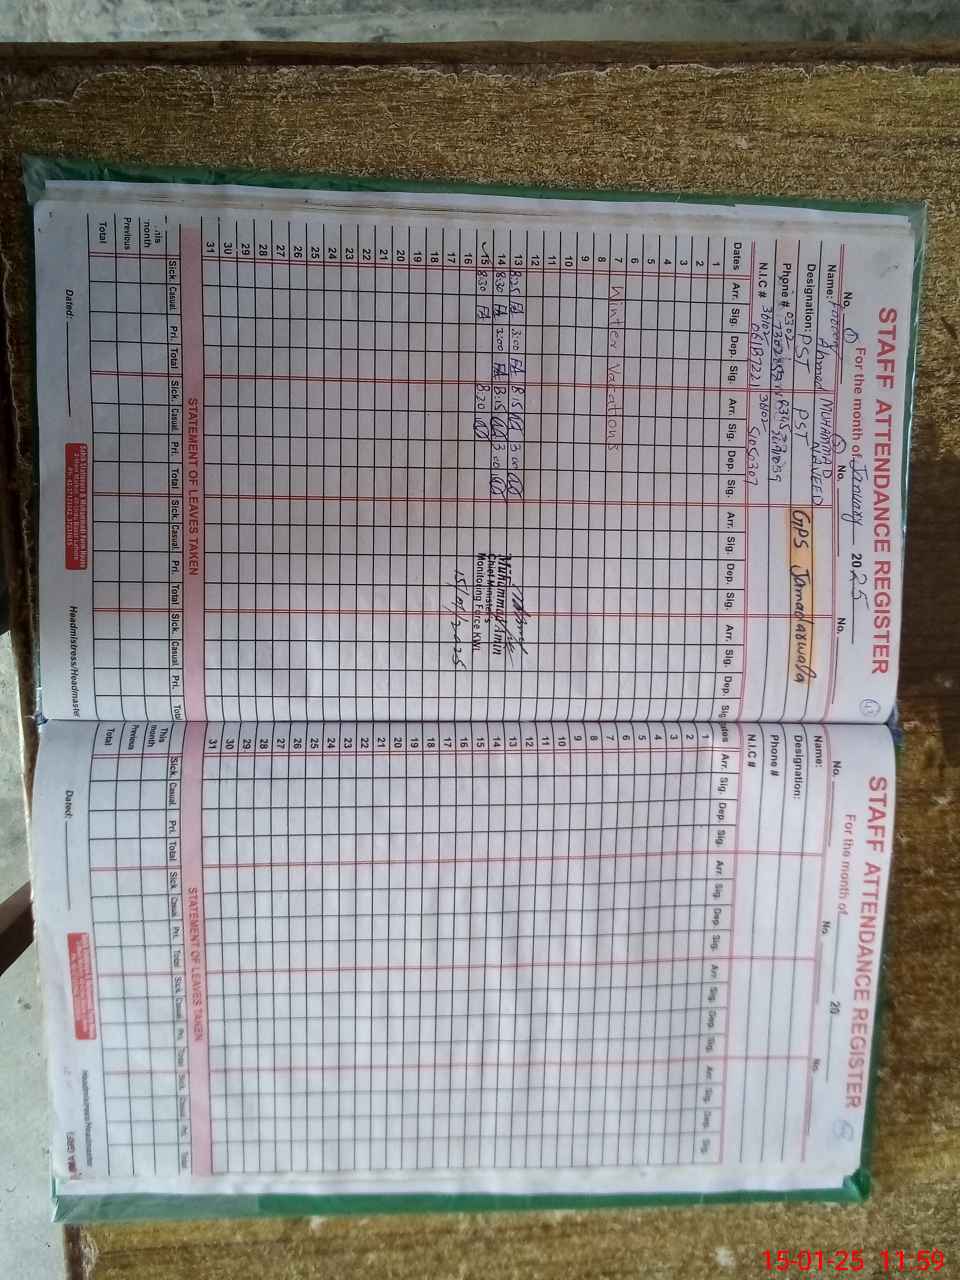 STAFF ATTENDANCE REGISTER
For the month of January 2025
43
No. 1 No. 2 No.
Name: Ahmed MUHAMMAD NAVEED
GPS Jamadarwala
Designation: PST PST
Phone # 0302
N.I.C # 36102 36102
Dates Arr. Sig. Dep. Sig. Arr. Sig. Dep. Sig. Arr. Sig. Dep. Sig. Arr. Sig. Dep. Sig.
1
2
3
4
5
6
7 Winter Vacations
8
9
10
11
12
13 8:25 FA 3:00 FA 8:15 3:00
14 8:30 FA 3:00 FA 8:15 3:00
15 8:30 FA 8:20
Muhammad Amin
Chief Minister's
Monitoring Force KWL
15/01/2025
16
17
18
19
20
21
22
23
24
25
26
27
28
29
30
31
STATEMENT OF LEAVES TAKEN
Sick. Casual Pri. Total Sick. Casual Pri. Total Sick. Casual Pri. Total Sick. Casual Pri. Total
This month
Previous
Total
Dated:
Headmistress/Headmaster
STAFF ATTENDANCE REGISTER
For the month of 20
No. No. No.
Name:
Designation:
Phone #
N.I.C #
Dates Arr. Sig. Dep. Sig. Arr. Sig. Dep. Sig. Arr. Sig. Dep. Sig. Arr. Sig. Dep. Sig.
1
2
3
4
5
6
7
8
9
10
11
12
13
14
15
16
17
18
19
20
21
22
23
24
25
26
27
28
29
30
31
STATEMENT OF LEAVES TAKEN
Sick. Casual Pri. Total Sick. Casual Pri. Total Sick. Casual Pri. Total Sick. Casual Pri. Total
This month
Previous
Total
Dated:
Headmistress/Headmaster
15-01-25 11:59